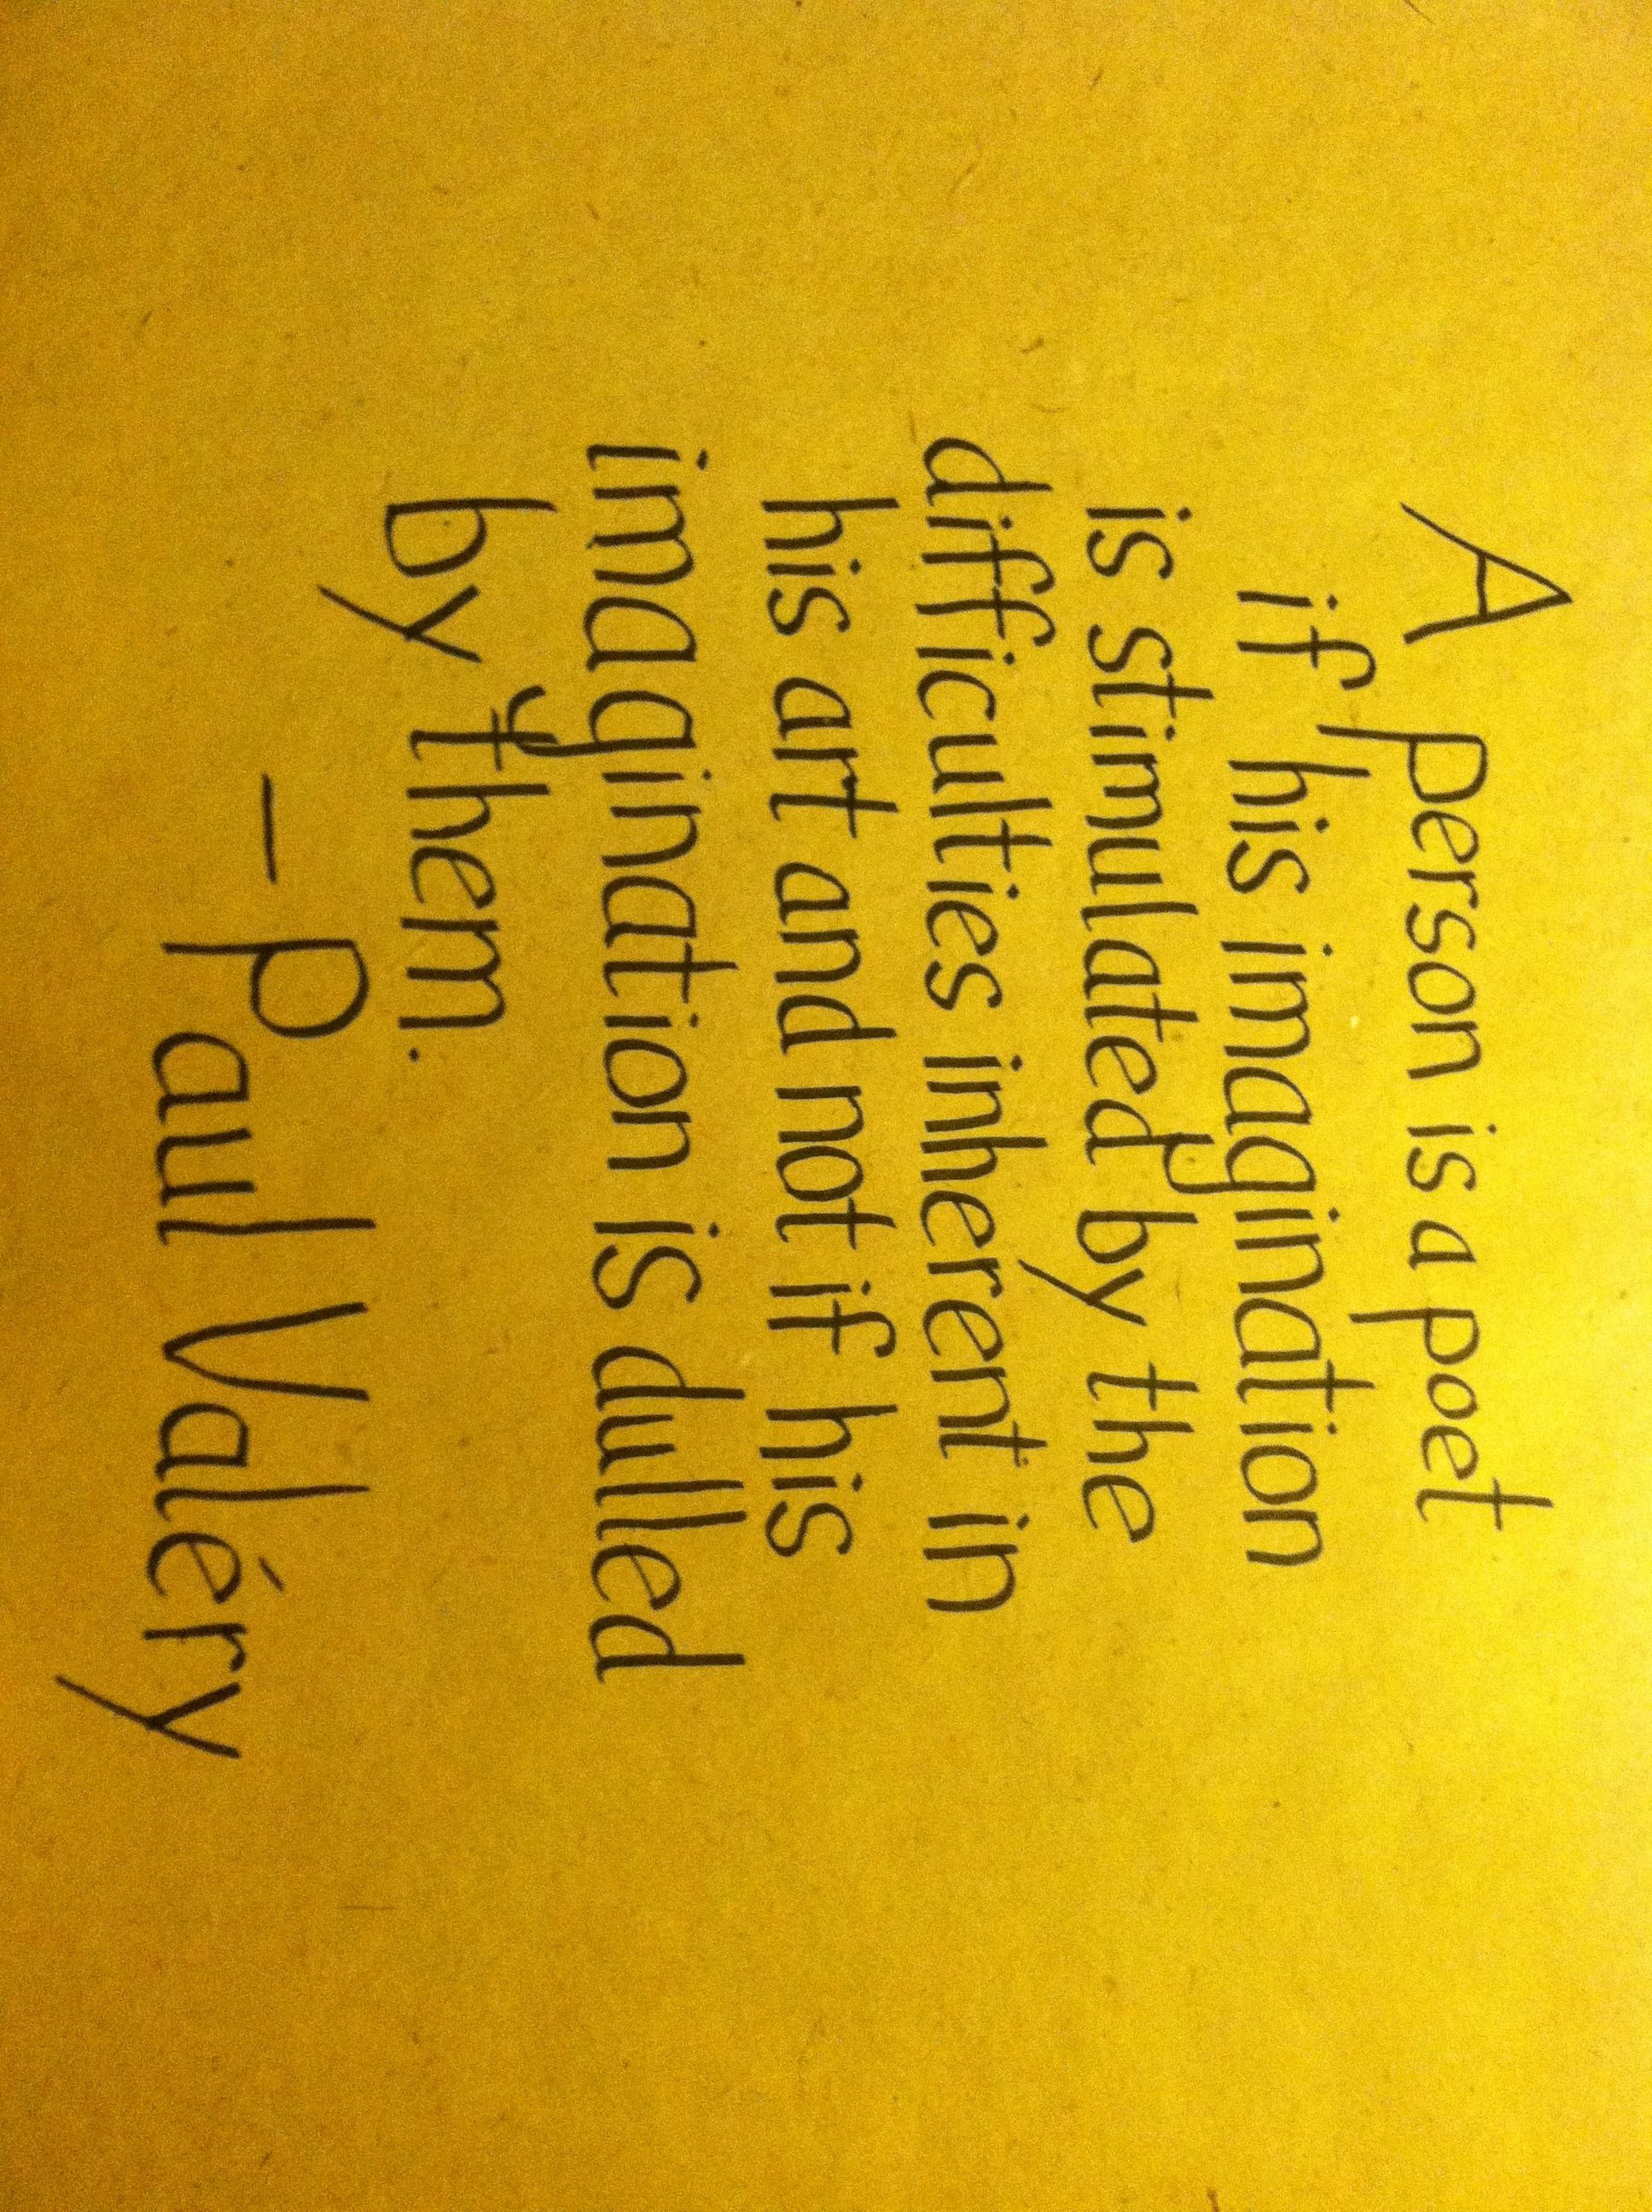 A person is a poet
if his imagination
is stimulated by the
difficulties inherent in
his art and not if his
imagination is dulled
by them.
- Paul Valéry